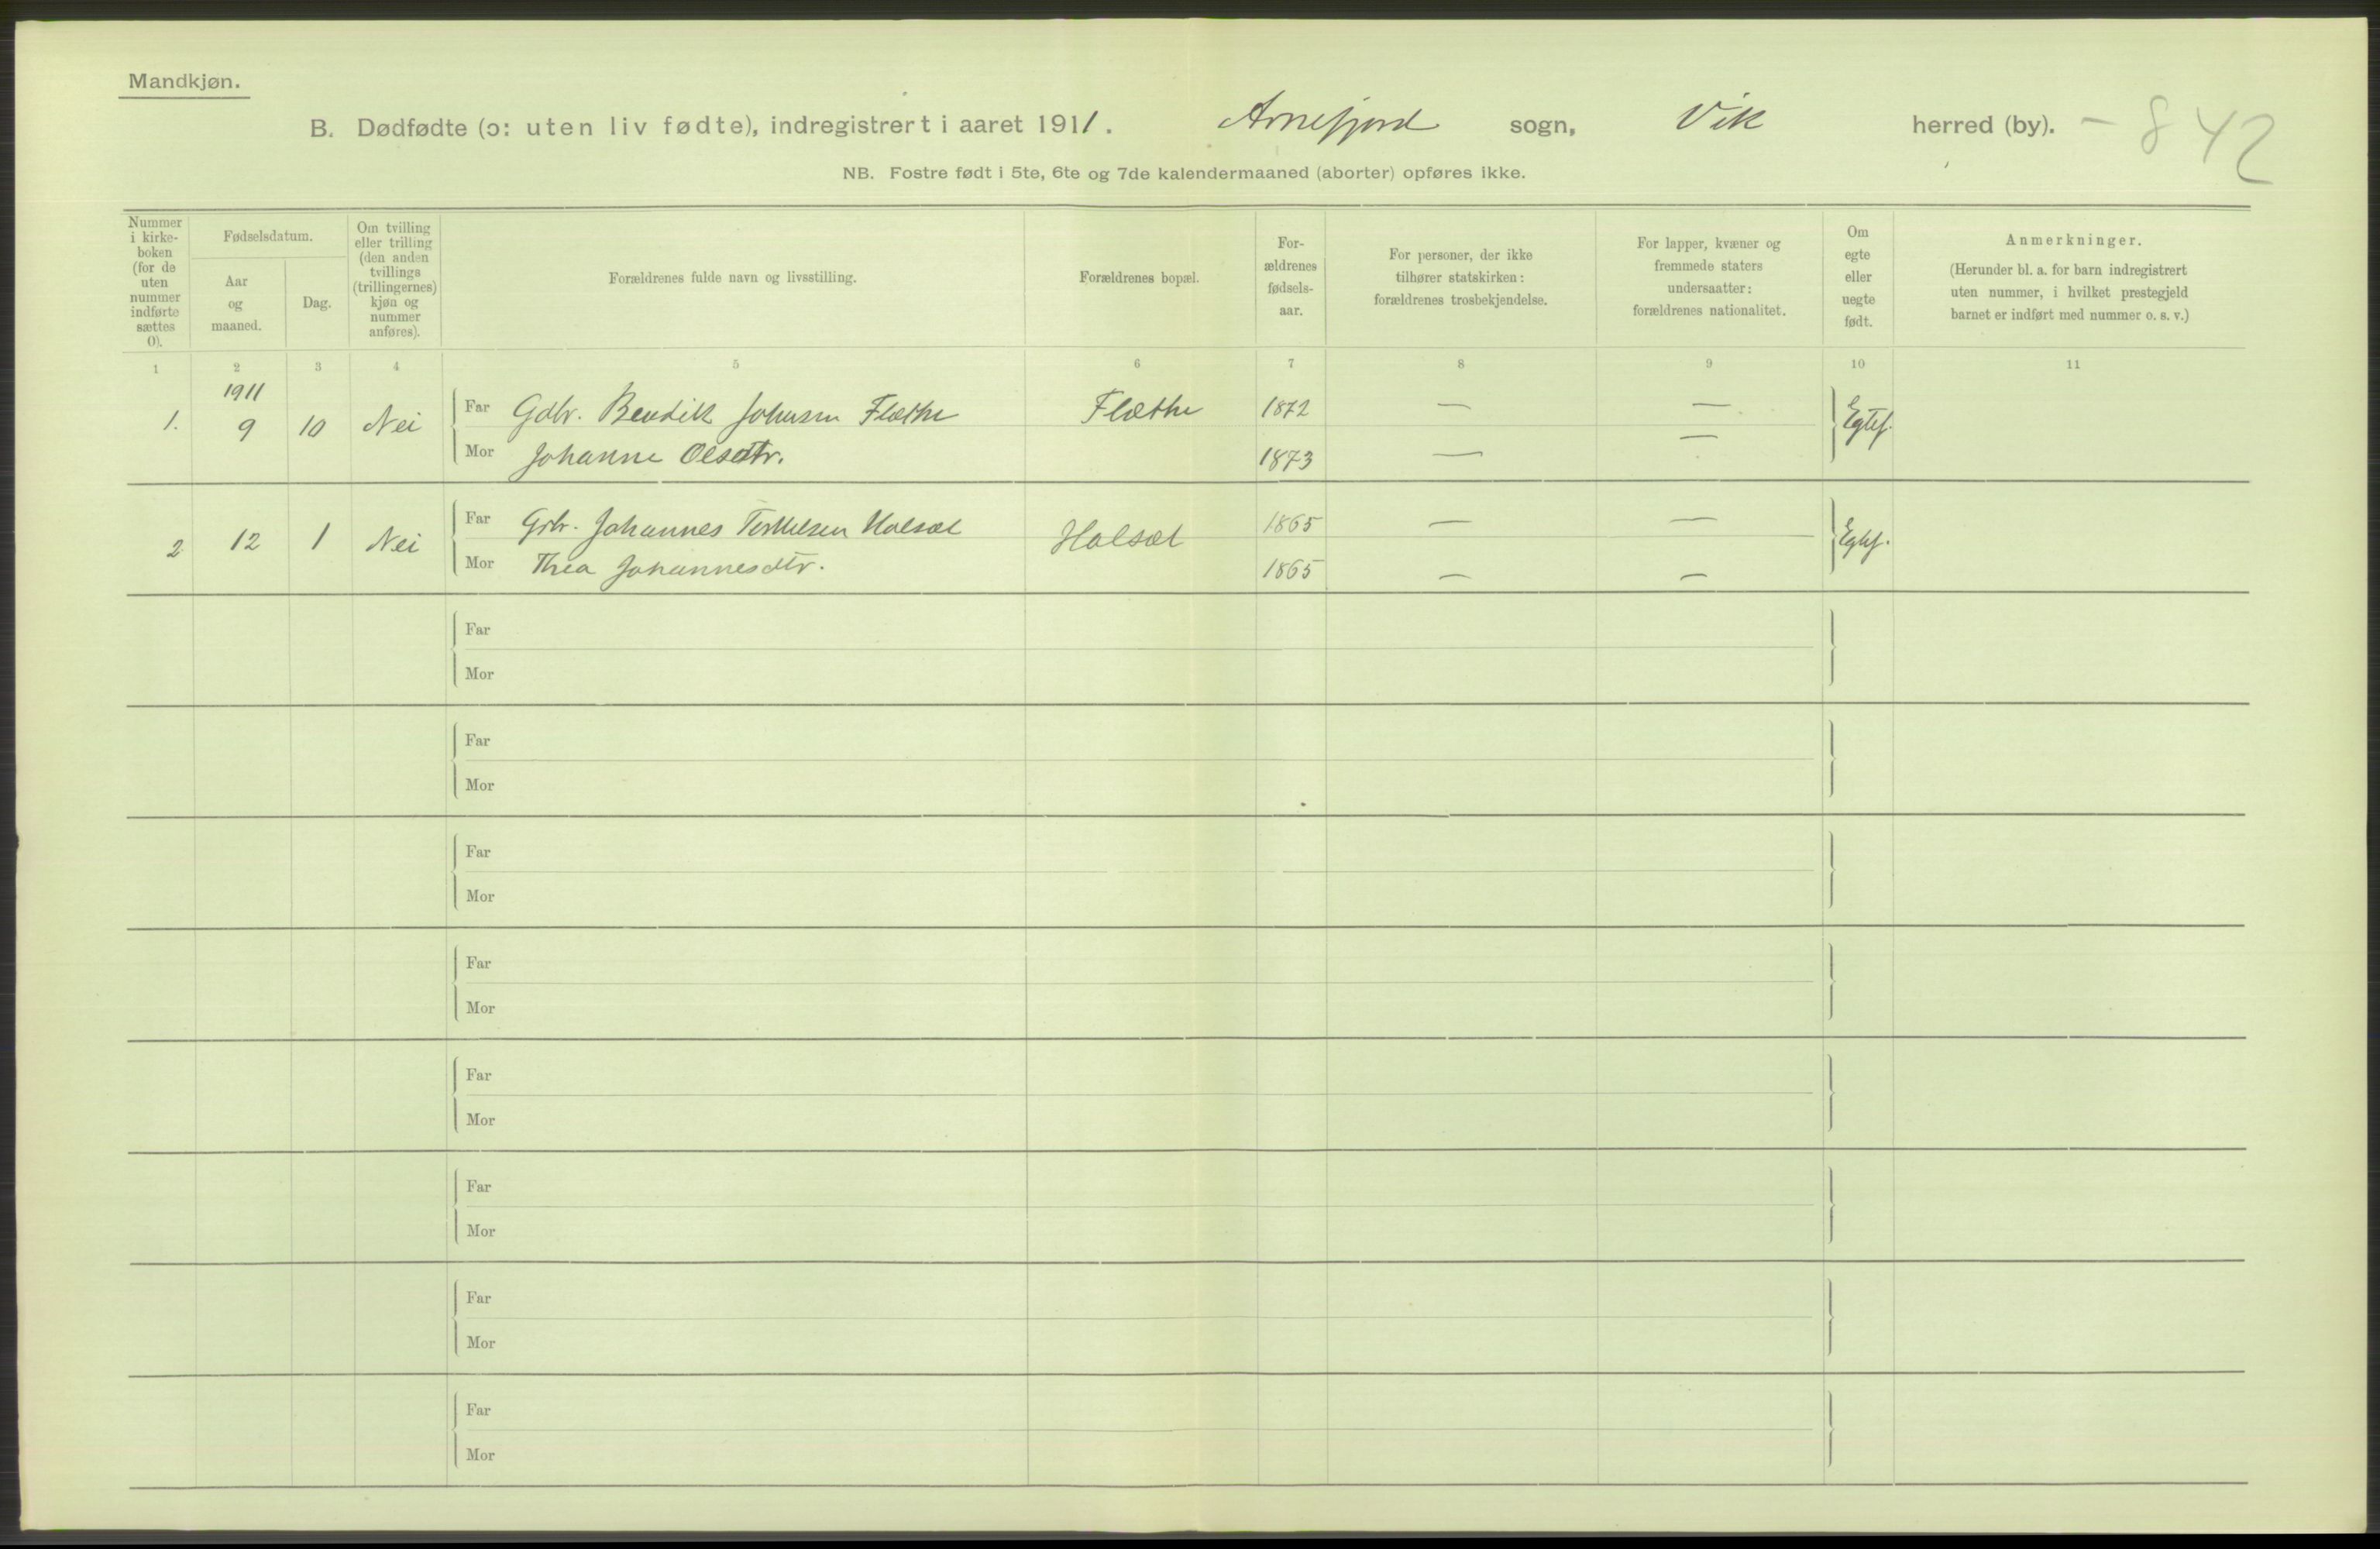 Mandkjøn.
B. Dødfødte (ɔ: uten liv fødte), indregistrert i aaret 1911. Arnefjord sogn, Vik herred (by). - 842
NB. Fostre født i 5te, 6te og 7de kalendermaaned (aborter) opføres ikke.
Nummer
i kirke-
boken
(for de
uten
nummer
indførte
sættes
0).
Fødselsdatum.
Aar
og
maaned.
Dag.
Om tvilling
eller trilling
(den anden
tvillings
(trillingernes)
kjøn og
nummer
anføres).
Forældrenes fulde navn og livsstilling.
Forældrenes bopæl.
For-
ældrenes
fødsels-
aar.
For personer, der ikke
tilhører statskirken:
forældrenes trosbekjendelse.
For lapper, kvæner og
fremmede staters
undersaatter:
forældrenes nationalitet.
Om
egte
eller
uegte
født.
Anmerkninger.
(Herunder bl. a. for barn indregistrert
uten nummer, i hvilket prestegjeld
barnet er indført med nummer o. s. v.)
1 2 3 4 5 6 7 8 9 10 11
1911
1. 9 10 Nei Far Gdbr. Bendik Johnsen Fløthe Fløthe 1872 — — Egtef.
Mor Johanne Olsdtr. 1873 — —
2 12 1 Nei Far Gbr. Johannes Torkelsen Halsæt Halsæt 1865 — — Egtef.
Mor Thea Johannesdtr. 1865 — —
Far
Mor
Far
Mor
Far
Mor
Far
Mor
Far
Mor
Far
Mor
Far
Mor
Far
Mor